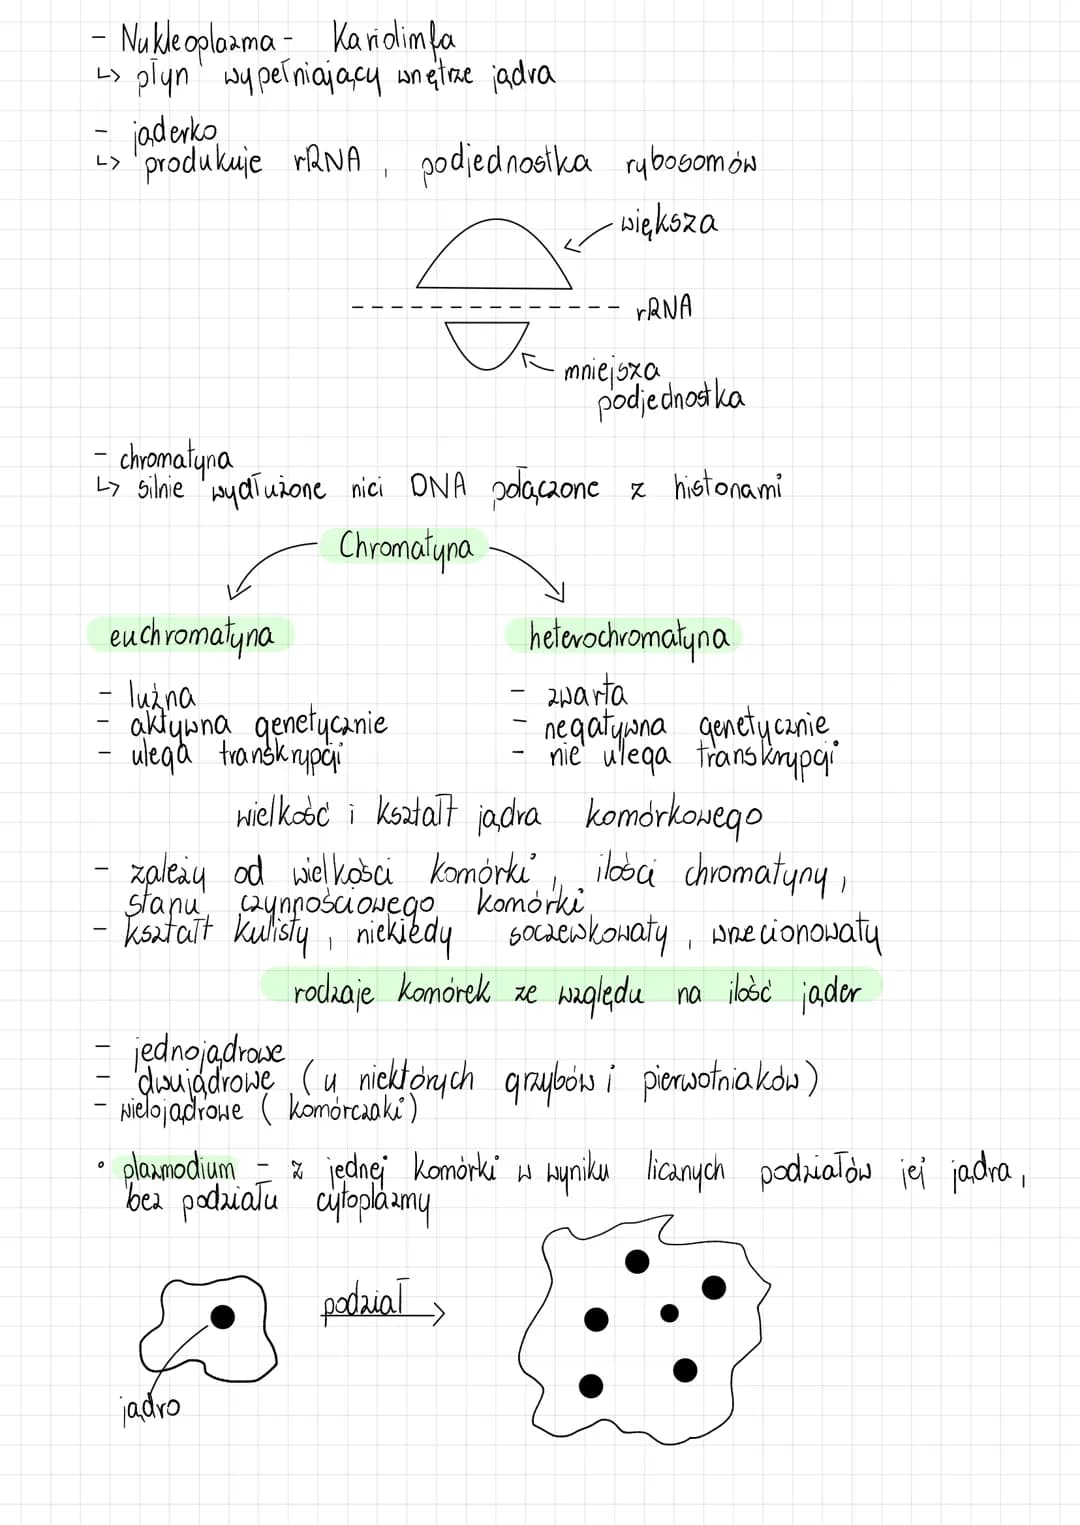 - Nukleoplazma - Kariolimfa
↳ płyn wypełniający wnętrze jądra
- jąderko
↳ produkuje rRNA, podjednostka rybosomów
większa
rRNA
mniejsza
podjednostka
- chromatyna
↳ silnie wydłużone nici DNA połączone z histonami
Chromatyna
euchromatyna
heterochromatyna
- luźna
- aktywna genetycznie
- ulega transkrypcji
- zwarta
- negatywna genetycznie
- nie ulega transkrypcji
wielkość i kształt jądra komórkowego
- zależy od wielkości komórki, ilości chromatyny,
stanu czynnościowego komórki
- kształt kulisty, niekiedy soczewkowaty, wrzecionowaty
rodzaje komórek ze względu na ilość jąder
- jednojądrowe
- dwujądrowe (u niektórych grzybów i pierwotniaków)
- wielojądrowe (komórczaki)
• plazmodium - z jednej komórki w wyniku licznych podziałów jej jądra,
bez podziału cytoplazmy
podział
jądro